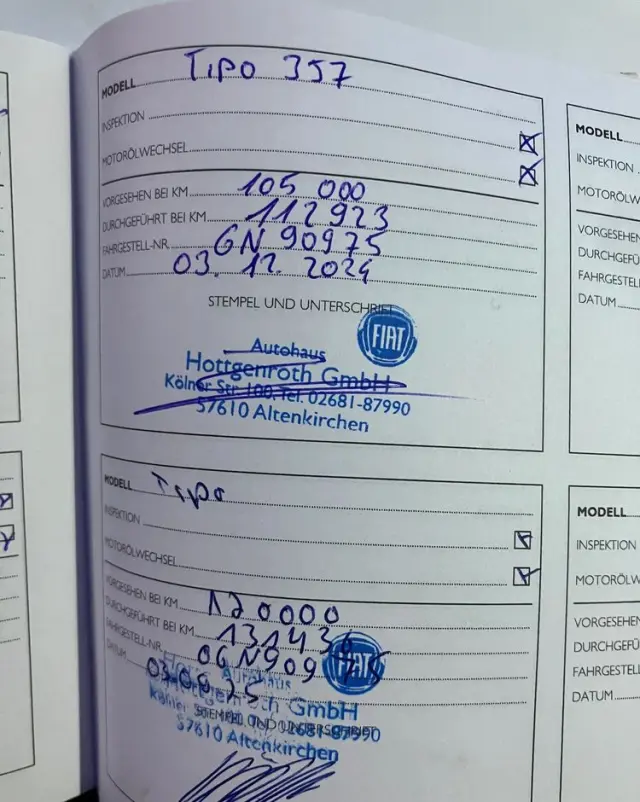 MODELL Tipo 357
INSPEKTION
MOTORÖLWECHSEL
VORGESEHEN BEI KM 105 000
DURCHGEFÜHRT BEI KM 112923
FAHRGESTELL-NR. GN 90975
DATUM 03. 12. 2024
STEMPEL UND UNTERSCHRIFT
FIAT
Autohaus
Hottgenroth GmbH
Kölner Str. 100, Tel. 02681-87990
57610 Altenkirchen
MODELL Tipo
INSPEKTION
MOTORÖLWECHSEL
VORGESEHEN BEI KM 120000
DURCHGEFÜHRT BEI KM 131436
FAHRGESTELL-NR. 0GN90975
DATUM
FIAT
Autohaus
GmbH
STEMPEL UND UNTERSCHRIFT
02681-87990
57610 Altenkirchen
MODELL
INSPEKTION
MOTORÖLW
VORGESEHEN
DURCHGEFÜ
FAHRGESTEL
DATUM
MODELL
INSPEKTION
MOTORÖLW
VORGESEHEN
DURCHGEFÜ
FAHRGESTELL
DATUM